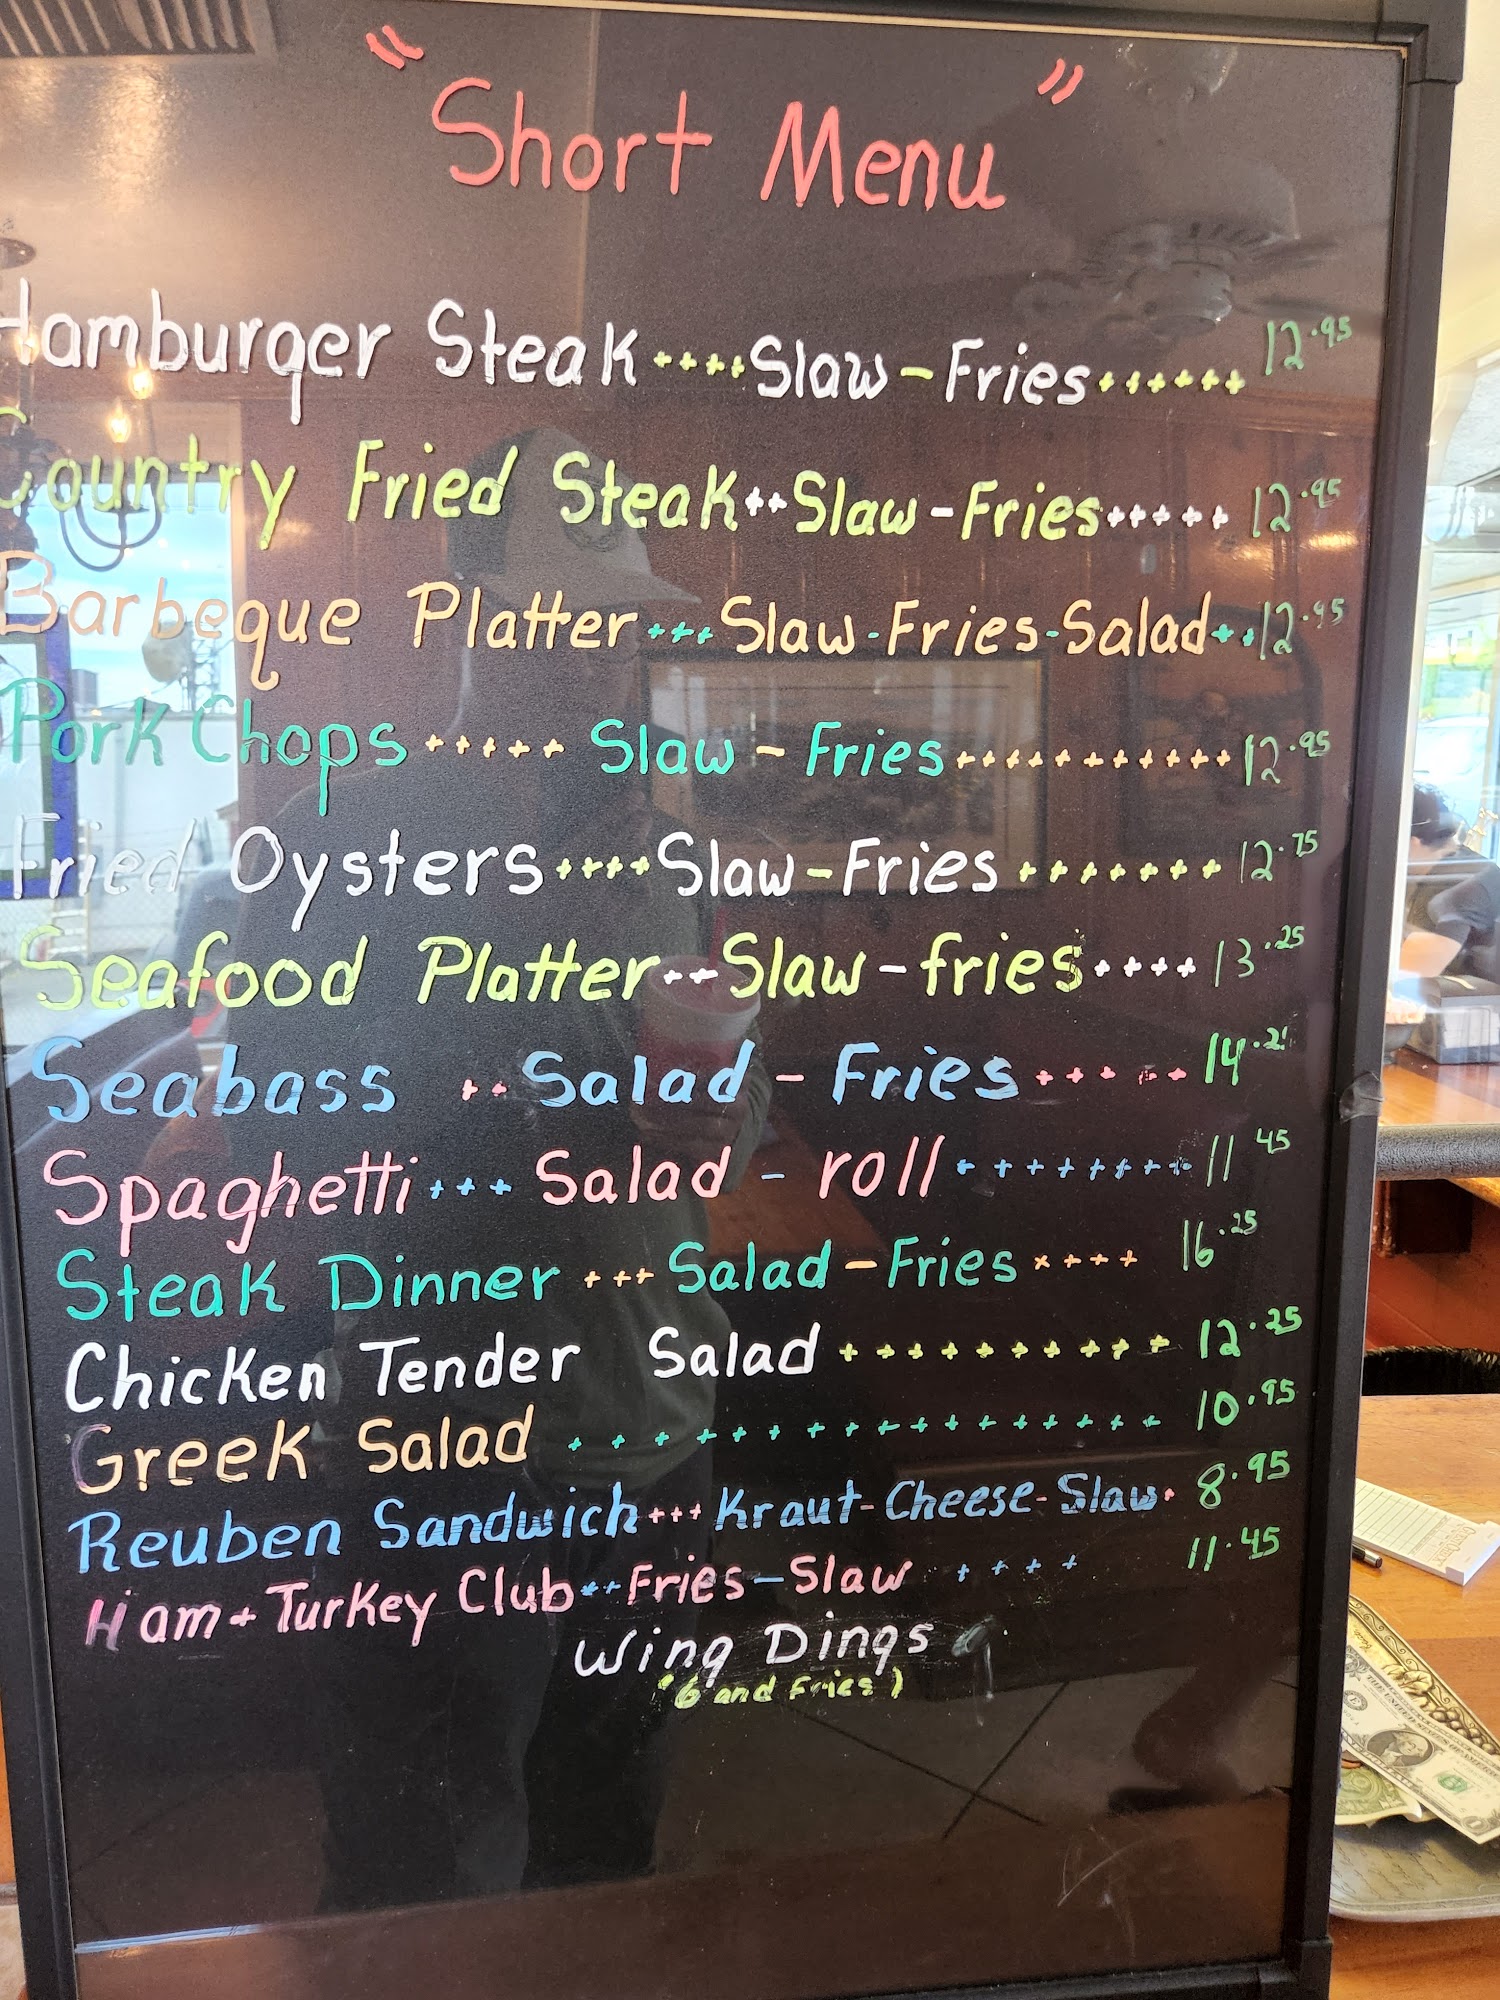 "Short Menu"
Hamburger Steak ++++ Slaw - Fries ++++++ 12.95
Country Fried Steak ++ Slaw - Fries +++++ 12.95
Barbeque Platter +++ Slaw - Fries - Salad ++ 12.95
Pork Chops +++++ Slaw - Fries +++++++++++ 12.95
Fried Oysters ++++ Slaw - Fries +++++++ 12.75
Seafood Platter ++ Slaw - fries ++++ 13.25
Seabass ++ Salad - Fries +++++ 14.2
Spaghetti +++ Salad - roll ++++++++ 11 45
Steak Dinner +++ Salad - Fries ++++ 16.25
Chicken Tender Salad ++++++++++ 12.25
Greek Salad +++++++++++++++ 10.95
Reuben Sandwich +++ Kraut - Cheese - Slaw + 8.95
Ham + Turkey Club ++ Fries - Slaw ++++ 11.45
Wing Dings
(6 and Fries)